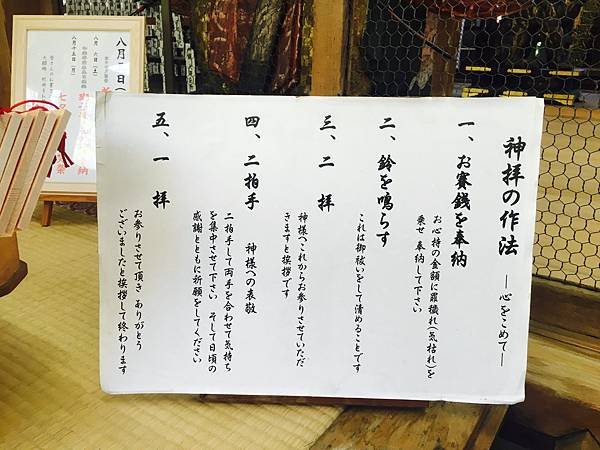 神拝の作法 ―心をこめて―
一、お賽銭を奉納
お心持の金額に罪穢れ(気枯れ)を
乗せ 奉納して下さい
二、鈴を鳴らす
これは御祓いをして清めることです
三、二 拝
神様へこれからお参りさせていただ
きますと挨拶です
四、二拍手 神様への表敬
二拍手して両手を合わせて気持ち
を集中させて下さい そして日頃の
感謝とともに祈願をしてください
五、一 拝
お参りさせて頂き ありがとう
ございましたと挨拶して終わります
八月
八月 六日(土)
八月十五日(月)